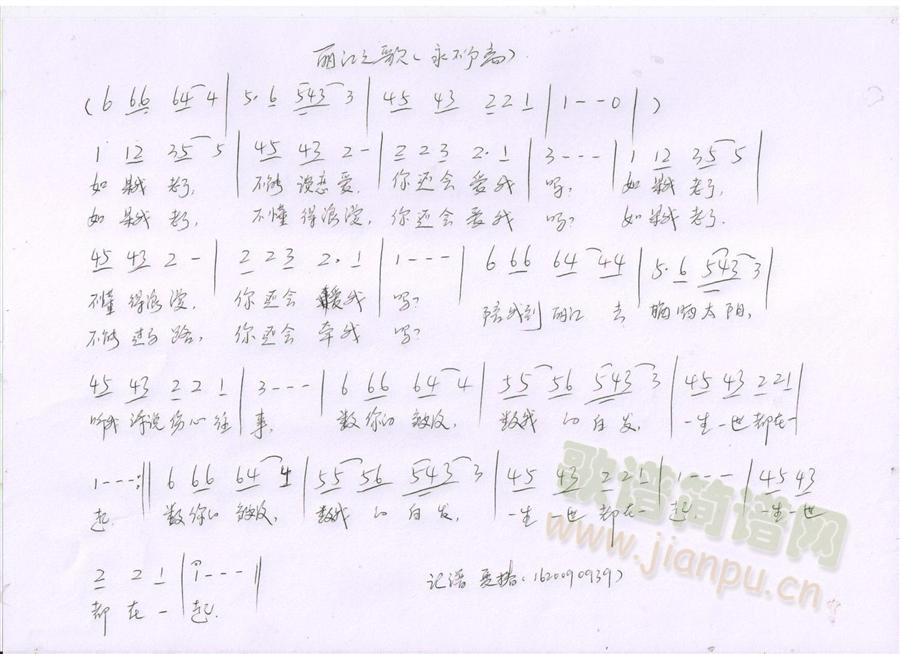 丽江之歌(永不分离)
( 6 66 64 4 | 5. 6 543 3 | 45 43 221 | 1--0 | )
1 12 35 5 | 45 43 2 - | 2 2 3 2. 1 | 3--- | 1 12 35 5 |
如 果我 老了, 不能 说恋爱, 你还会 爱我 吗? 如 果我 老了,
如 果我 老了, 不懂 得浪漫, 你还会 爱我 吗? 如 果我 老了.
45 43 2 - | 2 2 3 2. 1 | 1--- | 6 66 64 44 | 5. 6 543 3 |
不懂 得浪漫, 你还会 爱我 吗? 陪我到 丽江 去 晒晒太阳,
不能 走路, 你还会 牵我 吗?
45 43 2 2 1 | 3--- | 6 66 64 4 | 55 56 543 3 | 45 43 221 |
听我 诉说 伤心 往 事, 数你的 皱纹, 数我 的 白发, 一生 一世 都在一
1---:|| 6 66 64 4 | 55 56 543 3 | 45 43 221 | 1--- | 45 43
起. 数你的 皱纹, 数我 的 白发, 一生 一世 都在一 起. 一生 一世
2 2 1 | 1--- ||
都 在 一 起.
记谱 (1620090939)
歌谱简谱网
www.jianpu.cn